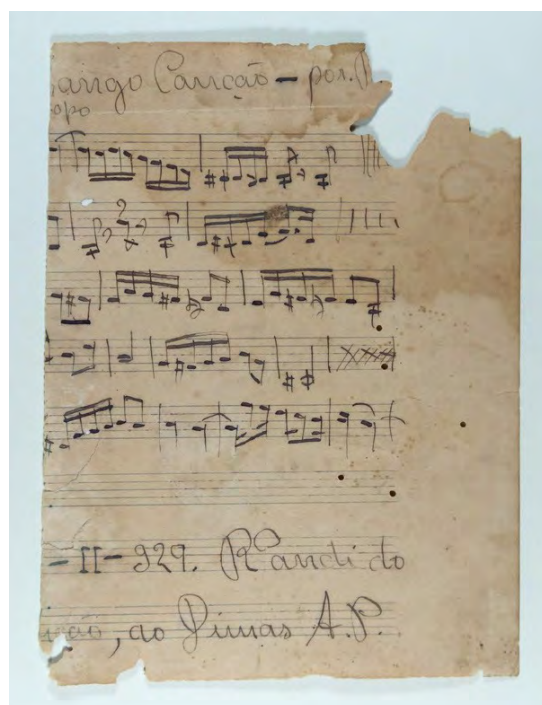 ango Canção - por. P
opo
- II - 929. Randi do
ção, ao Dimas A. P.